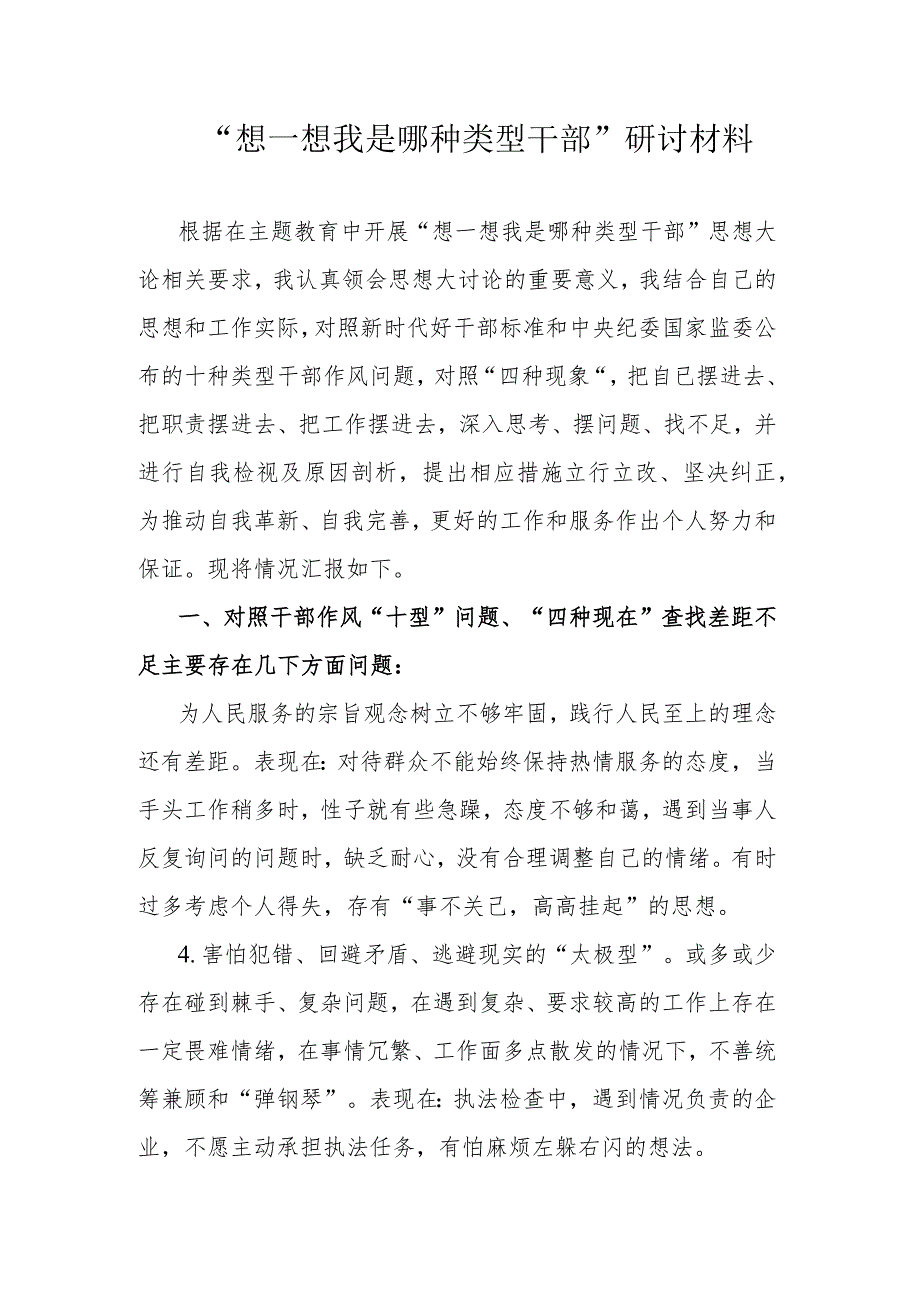 “想一想我是哪种类型干部”研讨材料
根据在主题教育中开展“想一想我是哪种类型干部”思想大
论相关要求，我认真领会思想大讨论的重要意义，我结合自己的
思想和工作实际，对照新时代好干部标准和中央纪委国家监委公
布的十种类型干部作风问题，对照“四种现象“，把自己摆进去、
把职责摆进去、把工作摆进去，深入思考、摆问题、找不足，并
进行自我检视及原因剖析，提出相应措施立行立改、坚决纠正，
为推动自我革新、自我完善，更好的工作和服务作出个人努力和
保证。现将情况汇报如下。
一、对照干部作风“十型”问题、“四种现在”查找差距不
足主要存在几下方面问题：
为人民服务的宗旨观念树立不够牢固，践行人民至上的理念
还有差距。表现在：对待群众不能始终保持热情服务的态度，当
手头工作稍多时，性子就有些急躁，态度不够和蔼，遇到当事人
反复询问的问题时，缺乏耐心，没有合理调整自己的情绪。有时
过多考虑个人得失，存有“事不关己，高高挂起”的思想。
4. 害怕犯错、回避矛盾、逃避现实的“太极型”。或多或少
存在碰到棘手、复杂问题，在遇到复杂、要求较高的工作上存在
一定畏难情绪，在事情冗繁、工作面多点散发的情况下，不善统
筹兼顾和“弹钢琴”。表现在：执法检查中，遇到情况负责的企
业，不愿主动承担执法任务，有怕麻烦左躲右闪的想法。